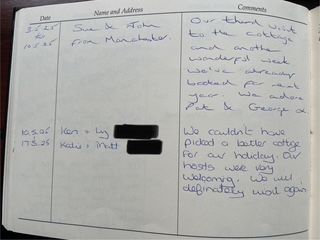 Date Name and Address Comments
3.5.25 Sue & John Our third visit
to from Manchester. to the cottage
10.5.25 and another
wonderful week
We've already
booked for next
year. We adore
Pat & George x
10.5.25 Ken & Liz We couldn't have
17.5.25 Katie & Matt picked a better cottage
for our holiday. Our
hosts were very
welcoming. We will
definately visit again